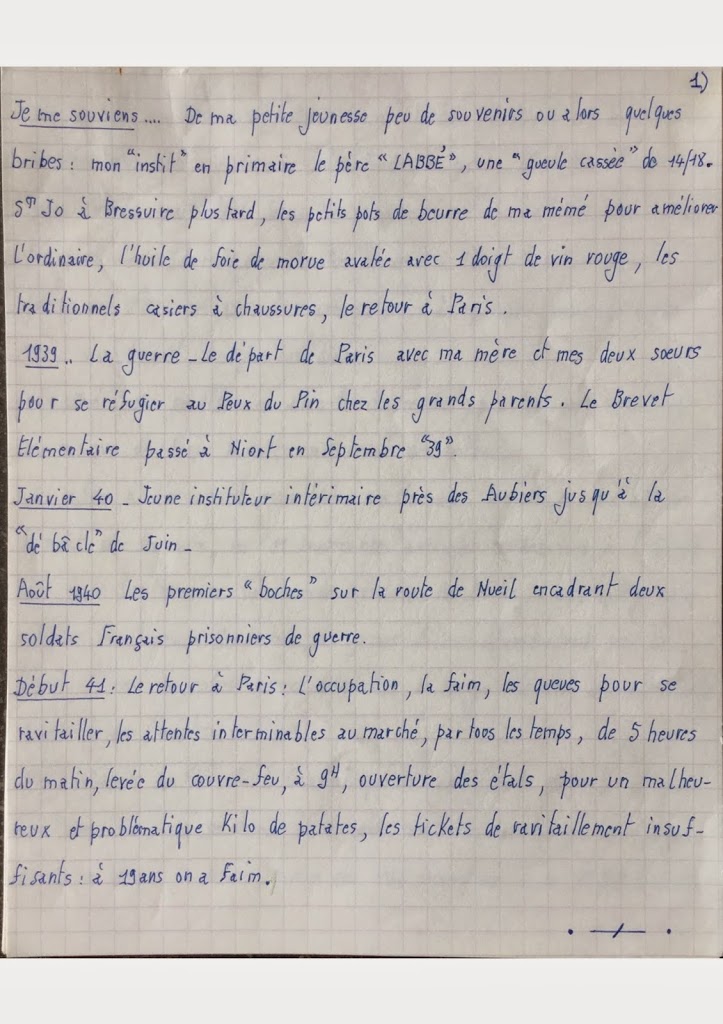 1)
Je me souviens.... De ma petite jeunesse peu de souvenirs ou alors quelques
bribes : mon "instit" en primaire le père "LABBÉ", une "gueule cassée" de 14/18.
St Jo à Bressuire plus tard, les petits pots de beurre de ma mémé pour améliorer
l'ordinaire, l'huile de foie de morue avalée avec 1 doigt de vin rouge, les
traditionnels casiers à chaussures, le retour à Paris.
1939.. La guerre - Le départ de Paris avec ma mère et mes deux soeurs
pour se réfugier au Peux du Pin chez les grands parents. Le Brevet
Elémentaire passé à Niort en Septembre "39".
Janvier 40 - Jeune instituteur intérimaire près des Aubiers jusqu'à la
"débâcle" de Juin -
Août 1940 Les premiers "boches" sur la route de Nueil encadrant deux
soldats Français prisonniers de guerre.
Début 41 : Le retour à Paris : L'occupation, la faim, les queues pour se
ravitailler, les attentes interminables au marché, par tous les temps, de 5 heures
du matin, levée du couvre-feu, à 9H, ouverture des étals, pour un malheu-
reux et problématique Kilo de patates, les tickets de ravitaillement insuf-
fisants : à 19 ans on a faim.